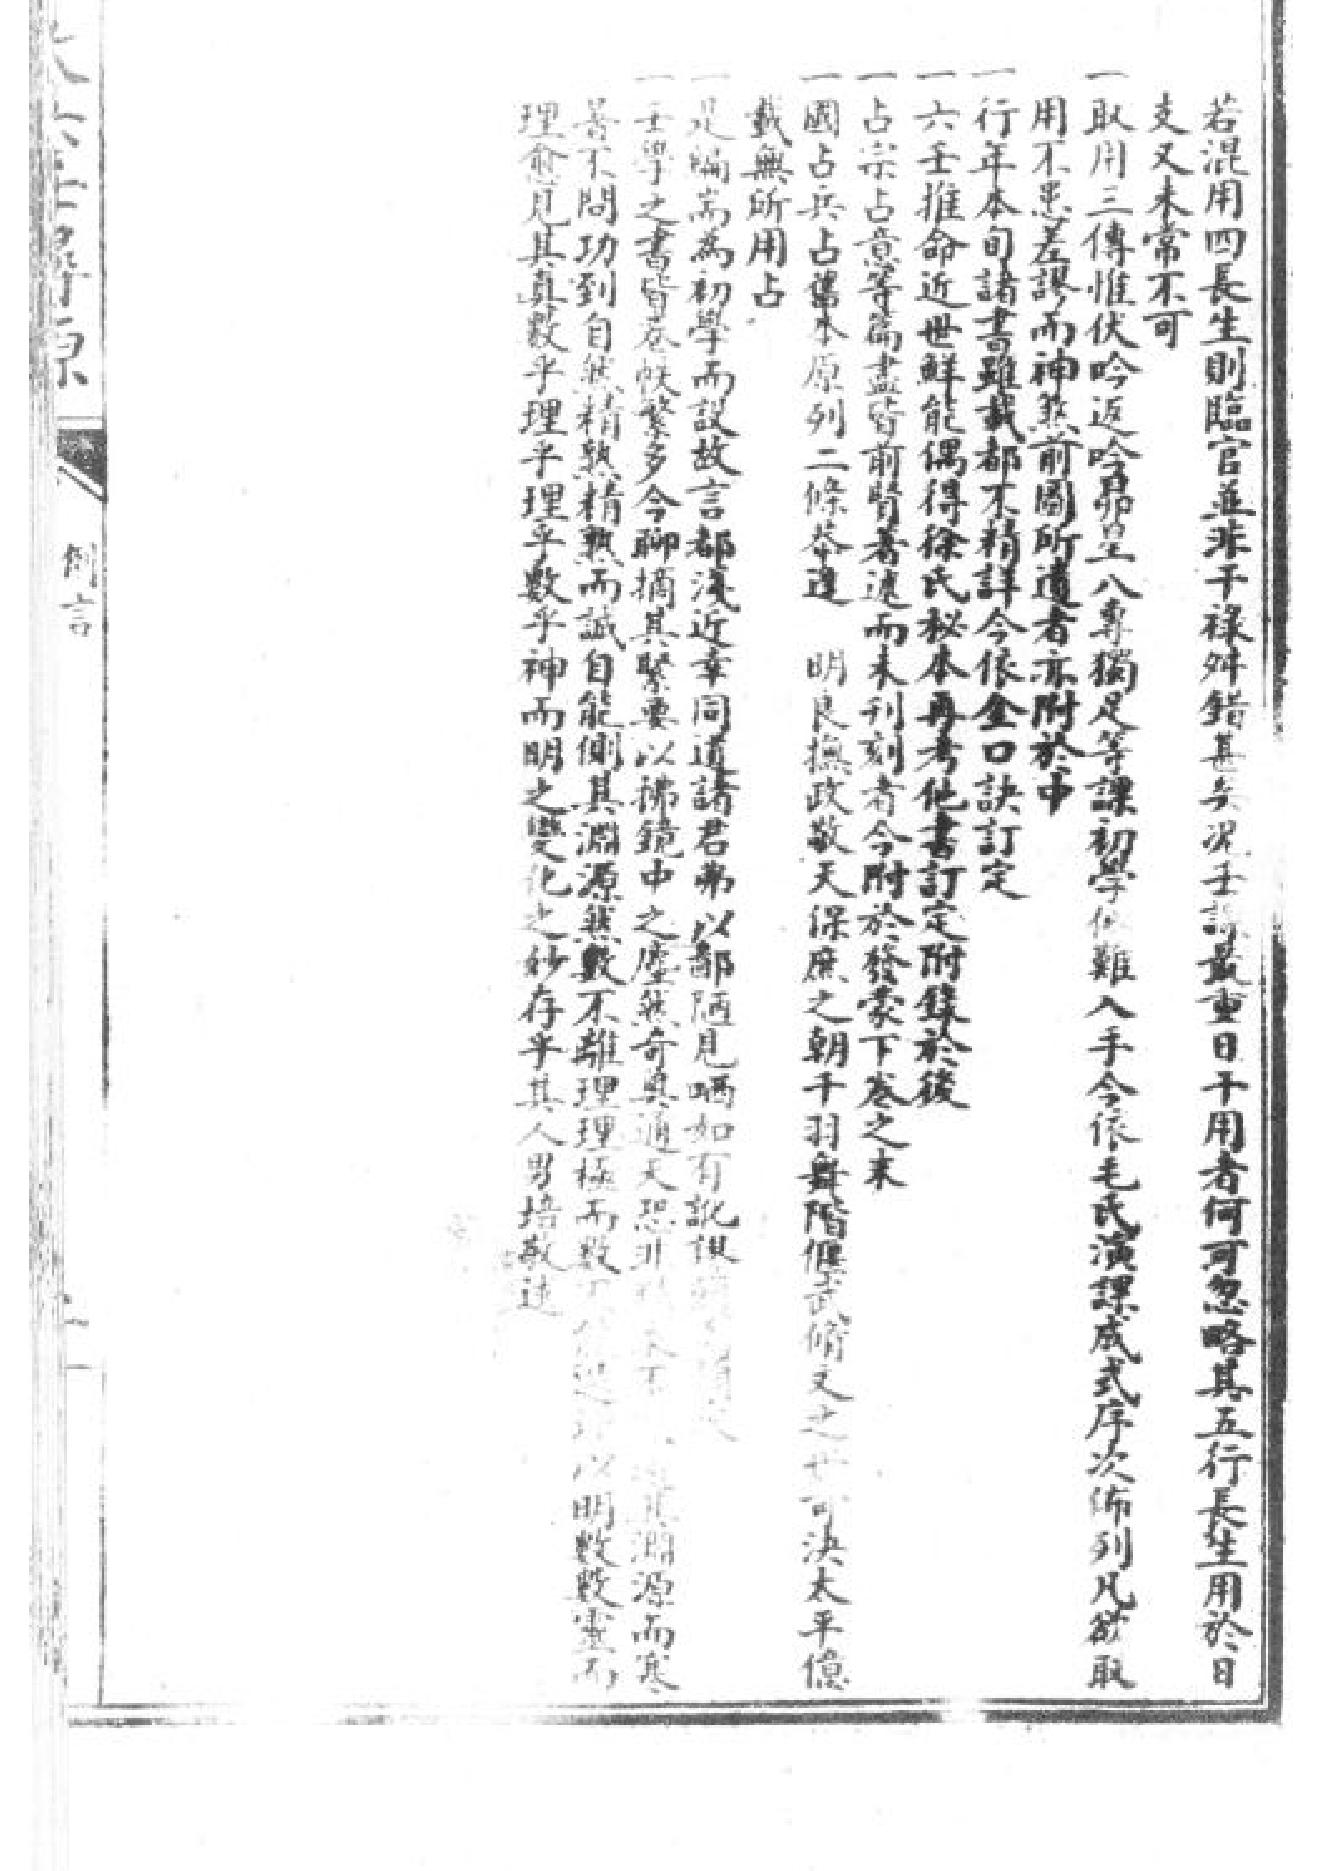 若混用四長生則臨官並非干祿舛錯甚矣況壬課最重日干用者何可忽略其五行長生用於日
支又未常不可
一取用三傳惟伏吟返吟昴星八專獨足等課初學似難入手今依毛氏演課成式序次佈列凡欲取
用不患差謬而神煞前圖所遺者亦附於中
一行年本旬諸書雖載都不精詳今依金口訣訂定
一六壬推命近世鮮能偶得徐氏秘本再考他書訂定附錄於後
一占宗占意等篇盡皆前賢著述而未刊刻者今附於發蒙下卷之末
一國占兵占舊本原列二條恭逢 明良撫政敬天保庶之朝干羽舞階偃武脩文之世可決太平億
載無所用占
一是編耑為初學而設故言都淺近幸同道諸君弗以鄙陋見哂如有訛誤
一壬學之書皆卷帙繁多今聊摘其緊要以拂鏡中之塵然奇與通天恐非 其淵源而寒
暑不問功到自然精熟精熟而誠自能側其淵源然數不離理理極而數 以明數數靈而
理愈見其真數乎理乎理乎數乎神而明之變化之妙存乎其人男培敬述
大六壬尋源
例言